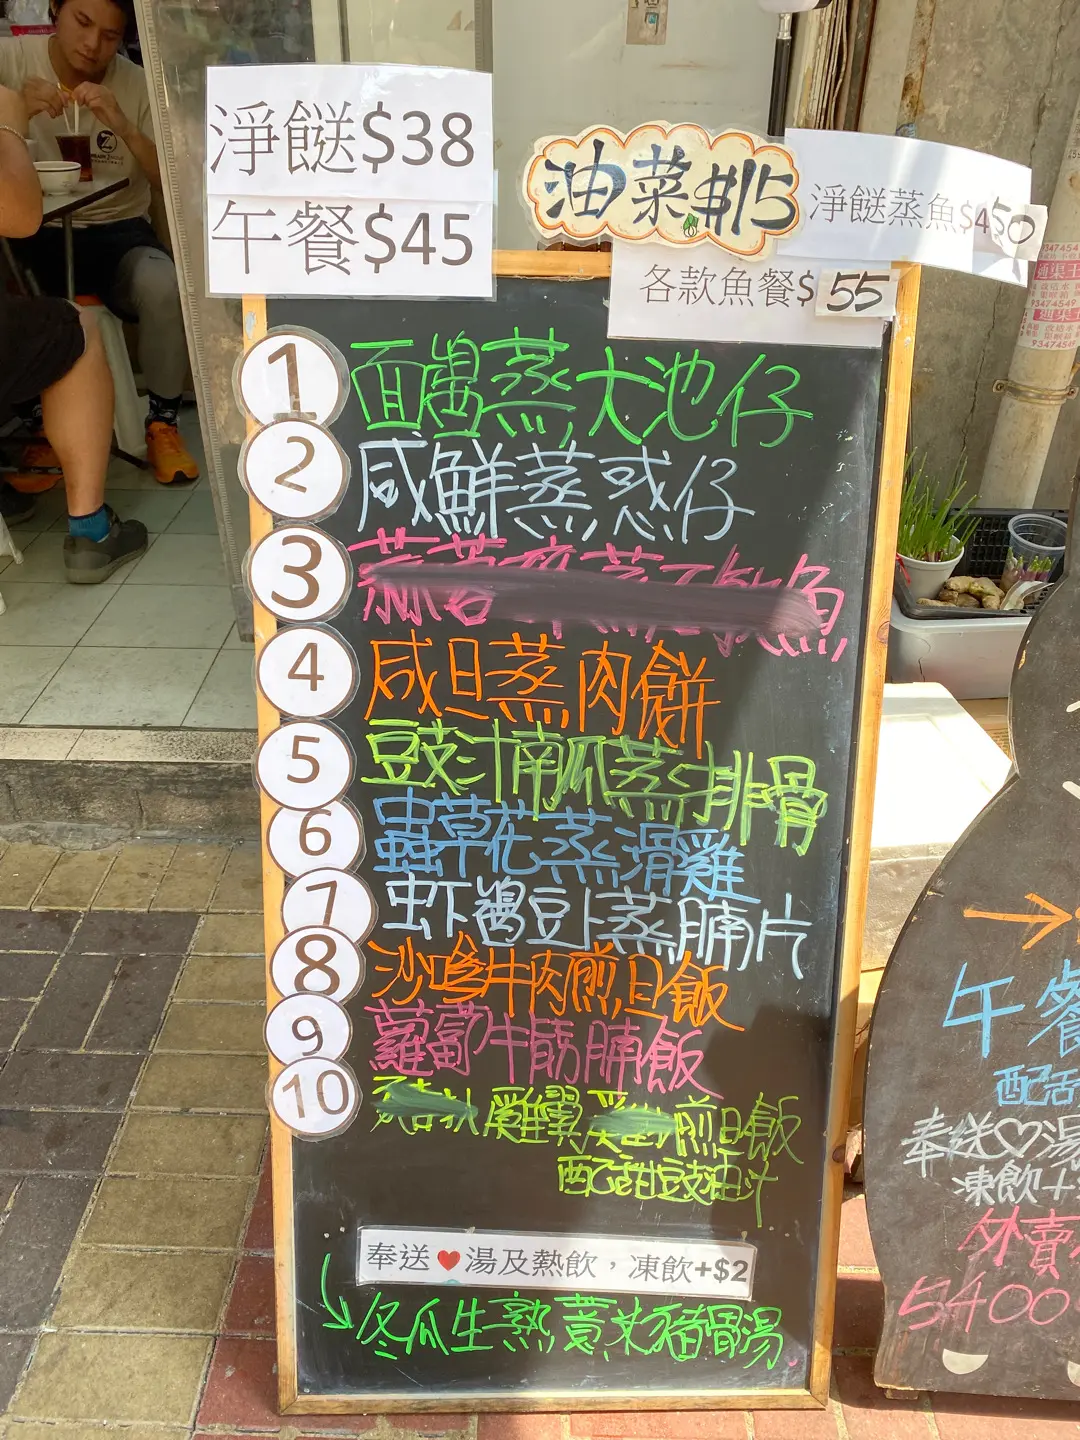 淨餸$38
午餐$45
油菜$15
淨餸蒸魚$450
各款魚餐$55
1 面醬蒸大池仔
2 咸鮮蒸惑仔
3 蒜蓉 蒸 魚
4 咸旦蒸肉餅
5 豆支汁南瓜蒸排骨
6 蟲草花蒸滑雞
7 虾醬豆卜蒸腩片
8 沙嗲牛肉煎旦飯
9 蘿蔔牛筋腩飯
10 雞翼 煎旦飯
配甜豉油汁
奉送❤湯及熱飲，凍飲+$2
冬瓜生熟薏米豬骨湯
午餐
配
奉送♡湯
凍飲+
外賣
5400
麵渠王
93474549